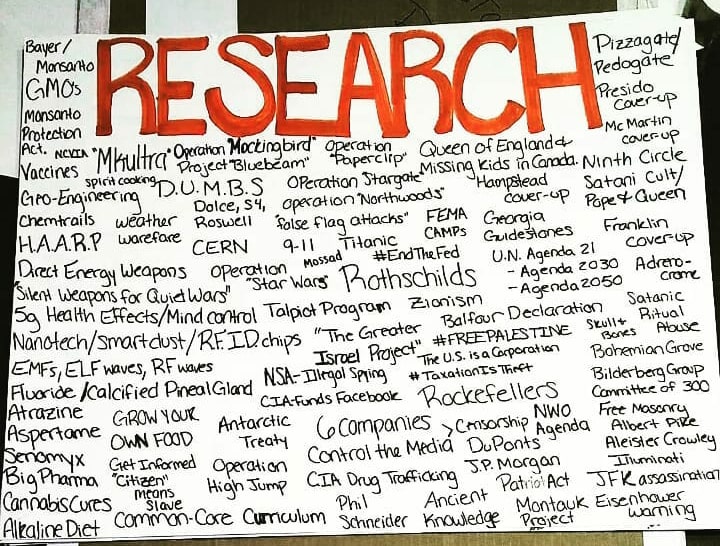 RESEARCH
Bayer/
Monsanto
GMOs
Monsanto
Protection
Act. NCVIA
Vaccines
"Mkultra"
Operation "Mockingbird"
Project "Bluebeam"
Operation
"Paperclip"
Queen of England &
Missing kids in Canada.
Pizzagate/
Pedogate
Presido
Cover-up
Mc Martin
cover-up
Ninth Circle
Satani Cult/
Pope & Queen
Geo-Engineering
spirit cooking
D.U.M.B.S
Dolce, S4,
Roswell
Operation "Stargate"
operation "Northwoods"
Hampstead
cover-up
Chemtrails
weather
warefare
"false flag attacks"
FEMA
CAMPs
Georgia
Guidestones
Franklin
cover-up
H.A.A.R.P
CERN
9-11
Titanic
Mossad
#EndTheFed
U.N. Agenda 21
- Agenda 2030
- Agenda 2050
Adreno-
crome
Direct Energy Weapons
operation
"Star Wars"
Rothschilds
"Silent Weapons for Quiet Wars"
5g Health Effects/Mind control
Talpiot Program
Zionism
Balfour Declaration
Satanic
Ritual
Abuse
Nanotech/smartdust/RFID chips
"The Greater
Israel Project"
#FREEPALESTINE
The U.S. is a Corporation
Skull &
Bones
EMFs, ELF waves, RF waves
NSA-Illegal Spying
#TaxationIsTheft
Bohemian Grove
Bilderberg Group
Committee of 300
Fluoride/Calcified Pineal Gland
CIA-Funds Facebook
Rockefellers
Atrazine
GROW YOUR
OWN FOOD
Antarctic
Treaty
6 Companies > Censorship
Control the Media
NWO
Agenda
Free Masonry
Albert Pike
Aleister Crowley
Aspertame
DuPonts
Illuminati
Senomyx
Get Informed
Operation
High Jump
J.P. Morgan
Big Pharma
"Citizen"
means
slave
CIA Drug Trafficking
Patriot Act
JFK assassination
Cannabis Cures
Phil
Schneider
Ancient
Knowledge
Montauk
Project
Eisenhower
warning
Alkaline Diet
Common-Core Curriculum